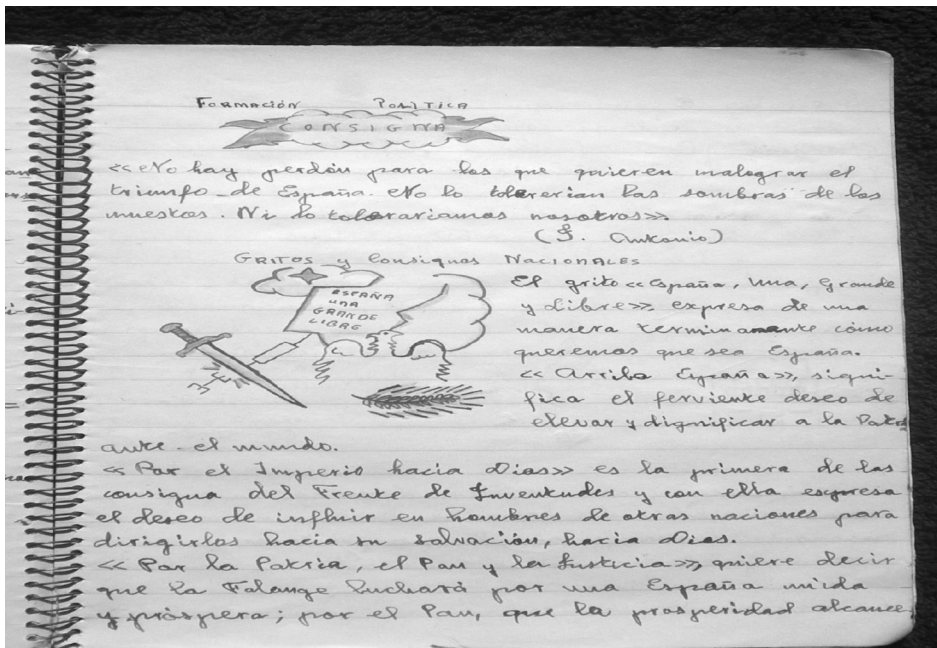 FORMACIÓN POLÍTICA
CONSIGNA
<<No hay perdón para los que quieren malograr el
triunfo de España. No lo tolererian las sombras de los
nuestros. Ni lo tolerariamos nosotros>>.
(J. Antonio)
GRITOS y Consignas NACIONALES
ESPAÑA
UNA
GRANDE
LIBRE
El grito <<España, Una, Grande
y Libre>>, expresa de una
manera terminante cómo
queremos que sea España.
<<Arriba España>>, signi-
fica el ferviente deseo de
elevar y dignificar a la Patria
ante el mundo.
<<Por el Imperio hacia Dios>> es la primera de las
consigna del Frente de Juventudes y con ella expresa
el deseo de influir en hombres de otras naciones para
dirigirlos hacia su salvación, hacia Dios.
<<Por la Patria, el Pan y la Justicia>>, quiere decir
que la Falange luchará por una España unida
y próspera; por el Pan, que la prosperidad alcance